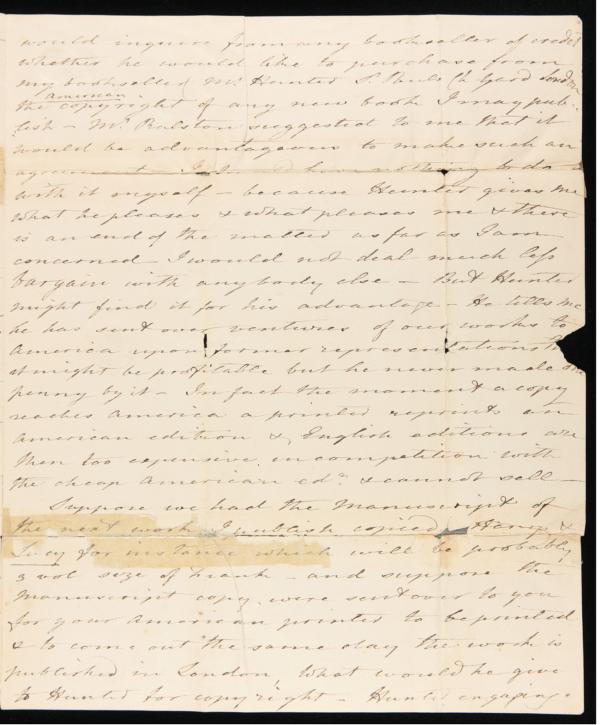 would inquire from any bookseller of credit
whether he would like to purchase from
my bookseller Mr Hunter St Pauls Ch Yard London
American
the copyright of any new book I may pub-
lish – Mr Ralston suggested to me that it
would be advantageous to make such an
agreement – I have nothing to do
with it myself – because Hunter gives me
what he pleases & what pleases me & there
is an end of the matter as far as I am
concerned I would not deal much less
bargain with any body else – But Hunter
might find it for his advantage – He tells me
he has sent over ventures of our works to
America upon former representations
it might be profitable but he never made one
penny by it – In fact the moment a copy
reaches America a printer reprints an
American edition & English editions are
then too expensive in competition with
the cheap American edn. & cannot sell –
Suppose we had the Manuscript of
the next work I publish copied Harry &
Lucy for instance which will be probably
3 vol size of Frank – and suppose the
Manuscript copy were sent over to you
for your American printer to be printed
& to come out the same day the work is
published in London, what would he give
to Hunter for copyright – Hunter engaging